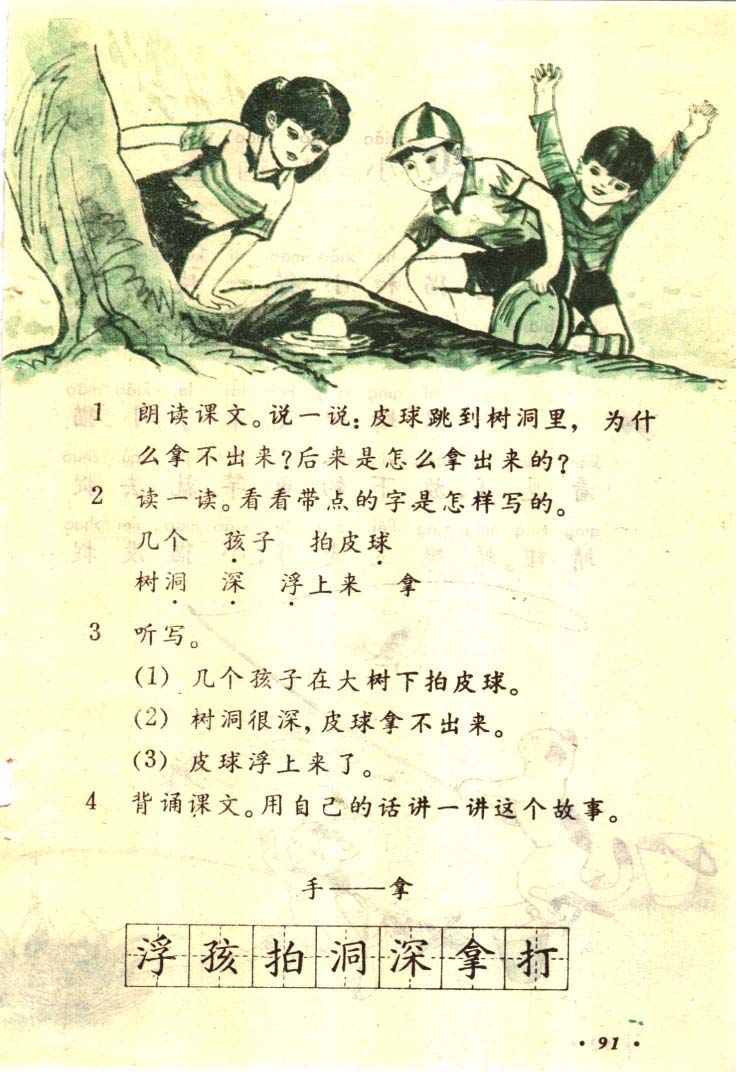 1 朗读课文。说一说:皮球跳到树洞里,为什
么拿不出来?后来是怎么拿出来的?
2 读一读。看看带点的字是怎样写的。
几个 孩子 拍皮球
树洞 深 浮上来 拿
3 听写。
(1) 几个孩子在大树下拍皮球。
(2) 树洞很深,皮球拿不出来。
(3) 皮球浮上来了。
4 背诵课文。用自己的话讲一讲这个故事。
手——拿
浮孩拍洞深拿打
·91·